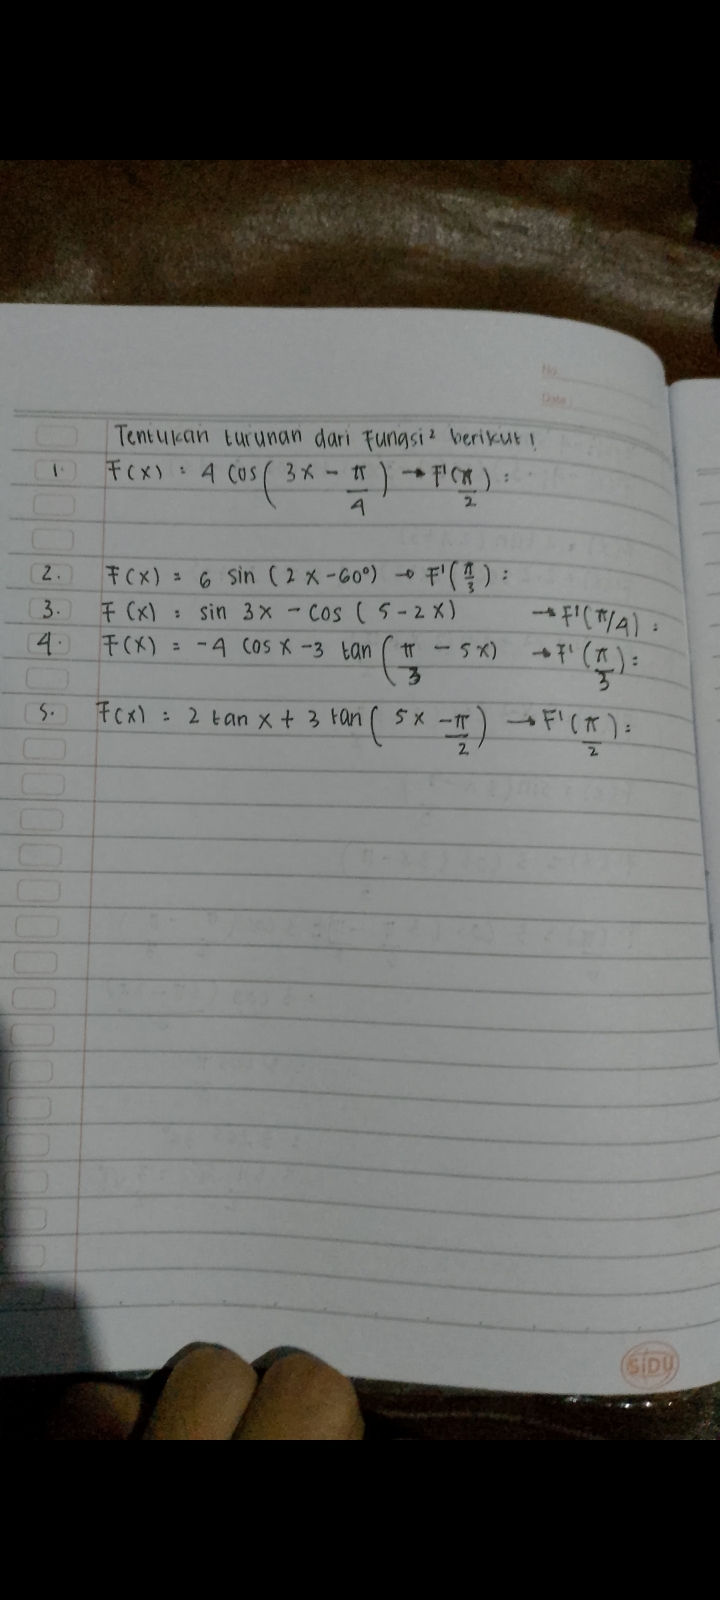 No
Date
Tentukan turunan dari Fungsi² berikut!
1. F(x) = 4 cos(3x - π/4) → F'(π/2) =
2. F(x) = 6 sin (2x-60°) → F'(π/3) =
3. F(x) = sin 3x - cos (5-2x) → F'(π/4) =
4. F(x) = -4 cos x -3 tan (π/3 - 5x) → F'(π/3) =
5. F(x) = 2 tan x + 3 tan (5x - π/2) → F'(π/2) =
SIDU